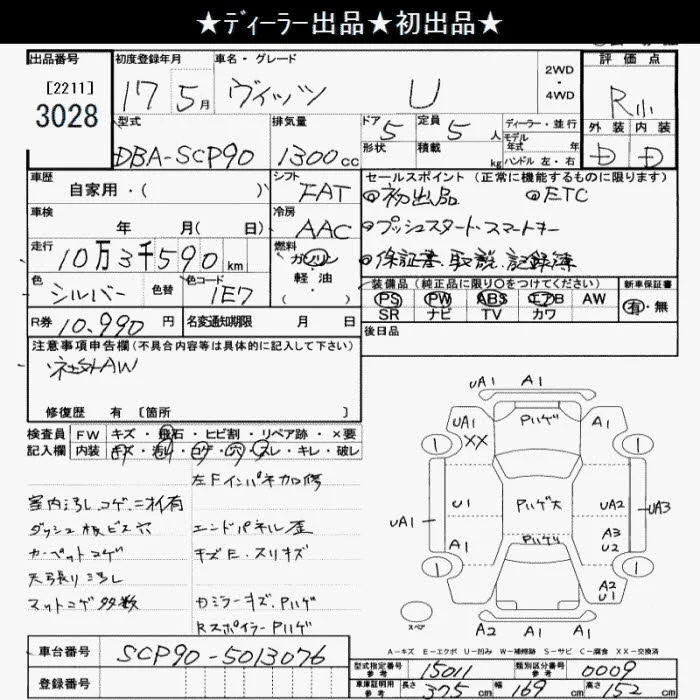 ★ディーラー出品★初出品★
出品番号
[2211]
3028
初度登録年月
17 5月
車名・グレード
ヴィッツ U
2WD
・
4WD
評価点
R小
外装 内装
D D
型式
DBA-SCP90
排気量
1300cc
ドア 5
形状
定員 5 人
積載 kg
ディーラー・並行
モデル年式 年
ハンドル 左・右
車歴
自家用・( )
シフト
FAT
車検
年 月( 日)
冷房
AAC
走行
10万3千590 km
燃料
ガソリン
軽・油
( )
色
シルバー
色替
色コード
1E7
R券 10,990 円
名変通知期限 月 日
セールスポイント (正常に機能するものに限ります)
◎初出品 ◎ETC
◎プッシュスタート・スマートキー
◎保証書、取説、記録簿
装備品 (純正品に限り〇をつけてください)
PS PW ABS エアB AW
SR ナビ TV カワ
新車保証書
有・無
後日品
注意事項申告欄(不具合内容等は具体的に記入して下さい)
社外AW
修復歴 有 [箇所 ]
検査員記入欄
FW キズ・飛石・ヒビ割・リペア跡・×要
内装 キズ・汚れ・コゲ・穴・スレ・キレ・破レ
左Fインパネ加修
室内汚レコゲニオイ有
ダッシュ板ビス穴
エンドパネル歪
カーペットコゲ
キズE.スリキズ
天張り汚レ
マットコゲ多数
カミラーキズ.Pハゲ
RスポイラーPハゲ
UA1 A1
UA1
XX
Pハゲ
A1
1
1
UA1
U1
Pハゲ大
UA2
UA3
A3
U2
A1
Pハゲ
1
1
A2
U1
スペア
A2 A1 A1
A−キズ E−エクボ U−凹み W−補修跡 S−サビ C−腐食 XX−交換済
車台番号
SCP90-5013076
登録番号
型式指定番号
参考
15011
類別区分番号
参考
0009
車庫証明用
参考
長さ 375 cm 幅 169 cm 高さ 152 cm